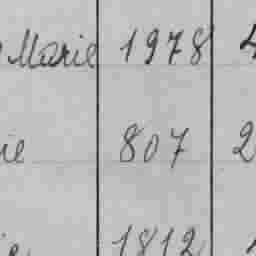 Marie 1978 4
ie 807 2
1812